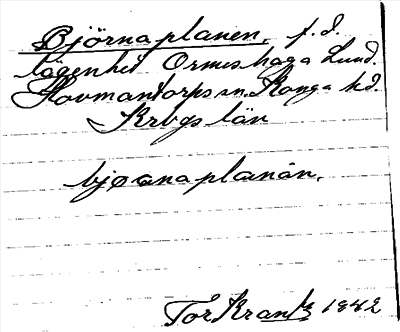 Björnaplanen, f.d.
lägenhet Ormeshaga Lund.
Hovmantorps sn. Konga hd.
Krbgs län
bjøṛnaplanän,
Tor Krantz 1942